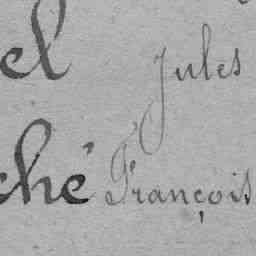 el Jules
ché François